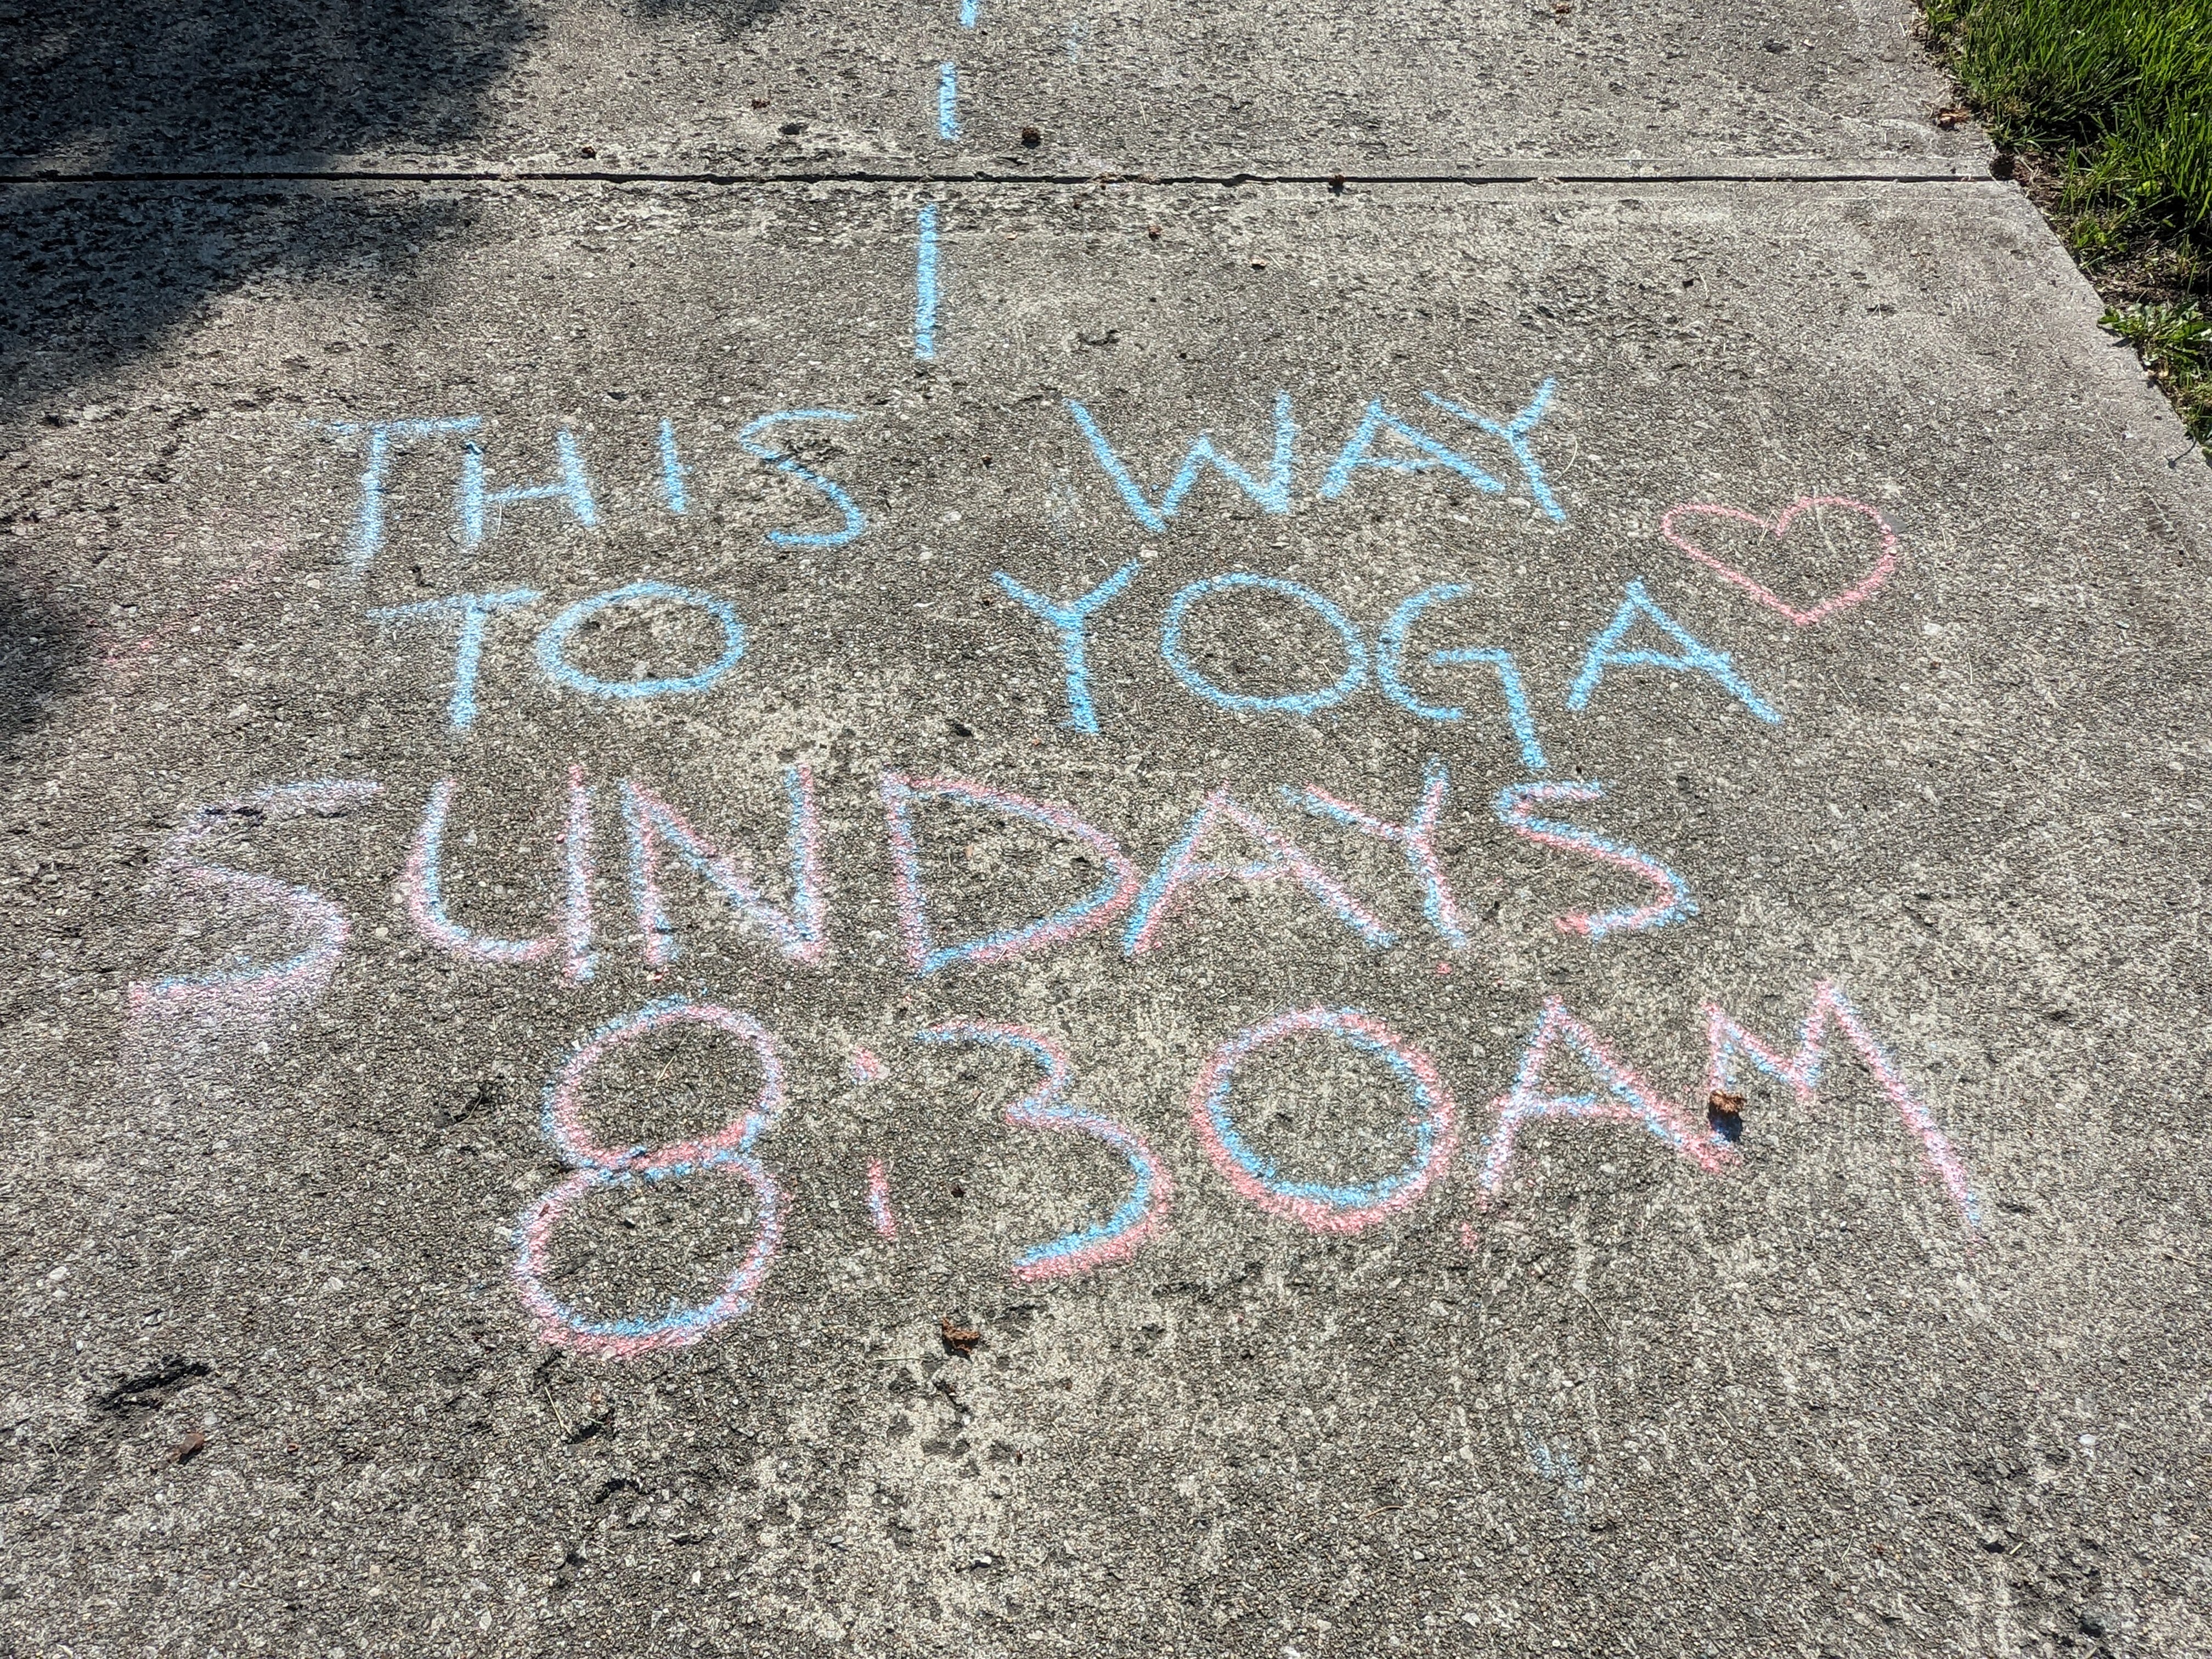 THIS WAY
TO YOGA
SUNDAYS
8:30AM